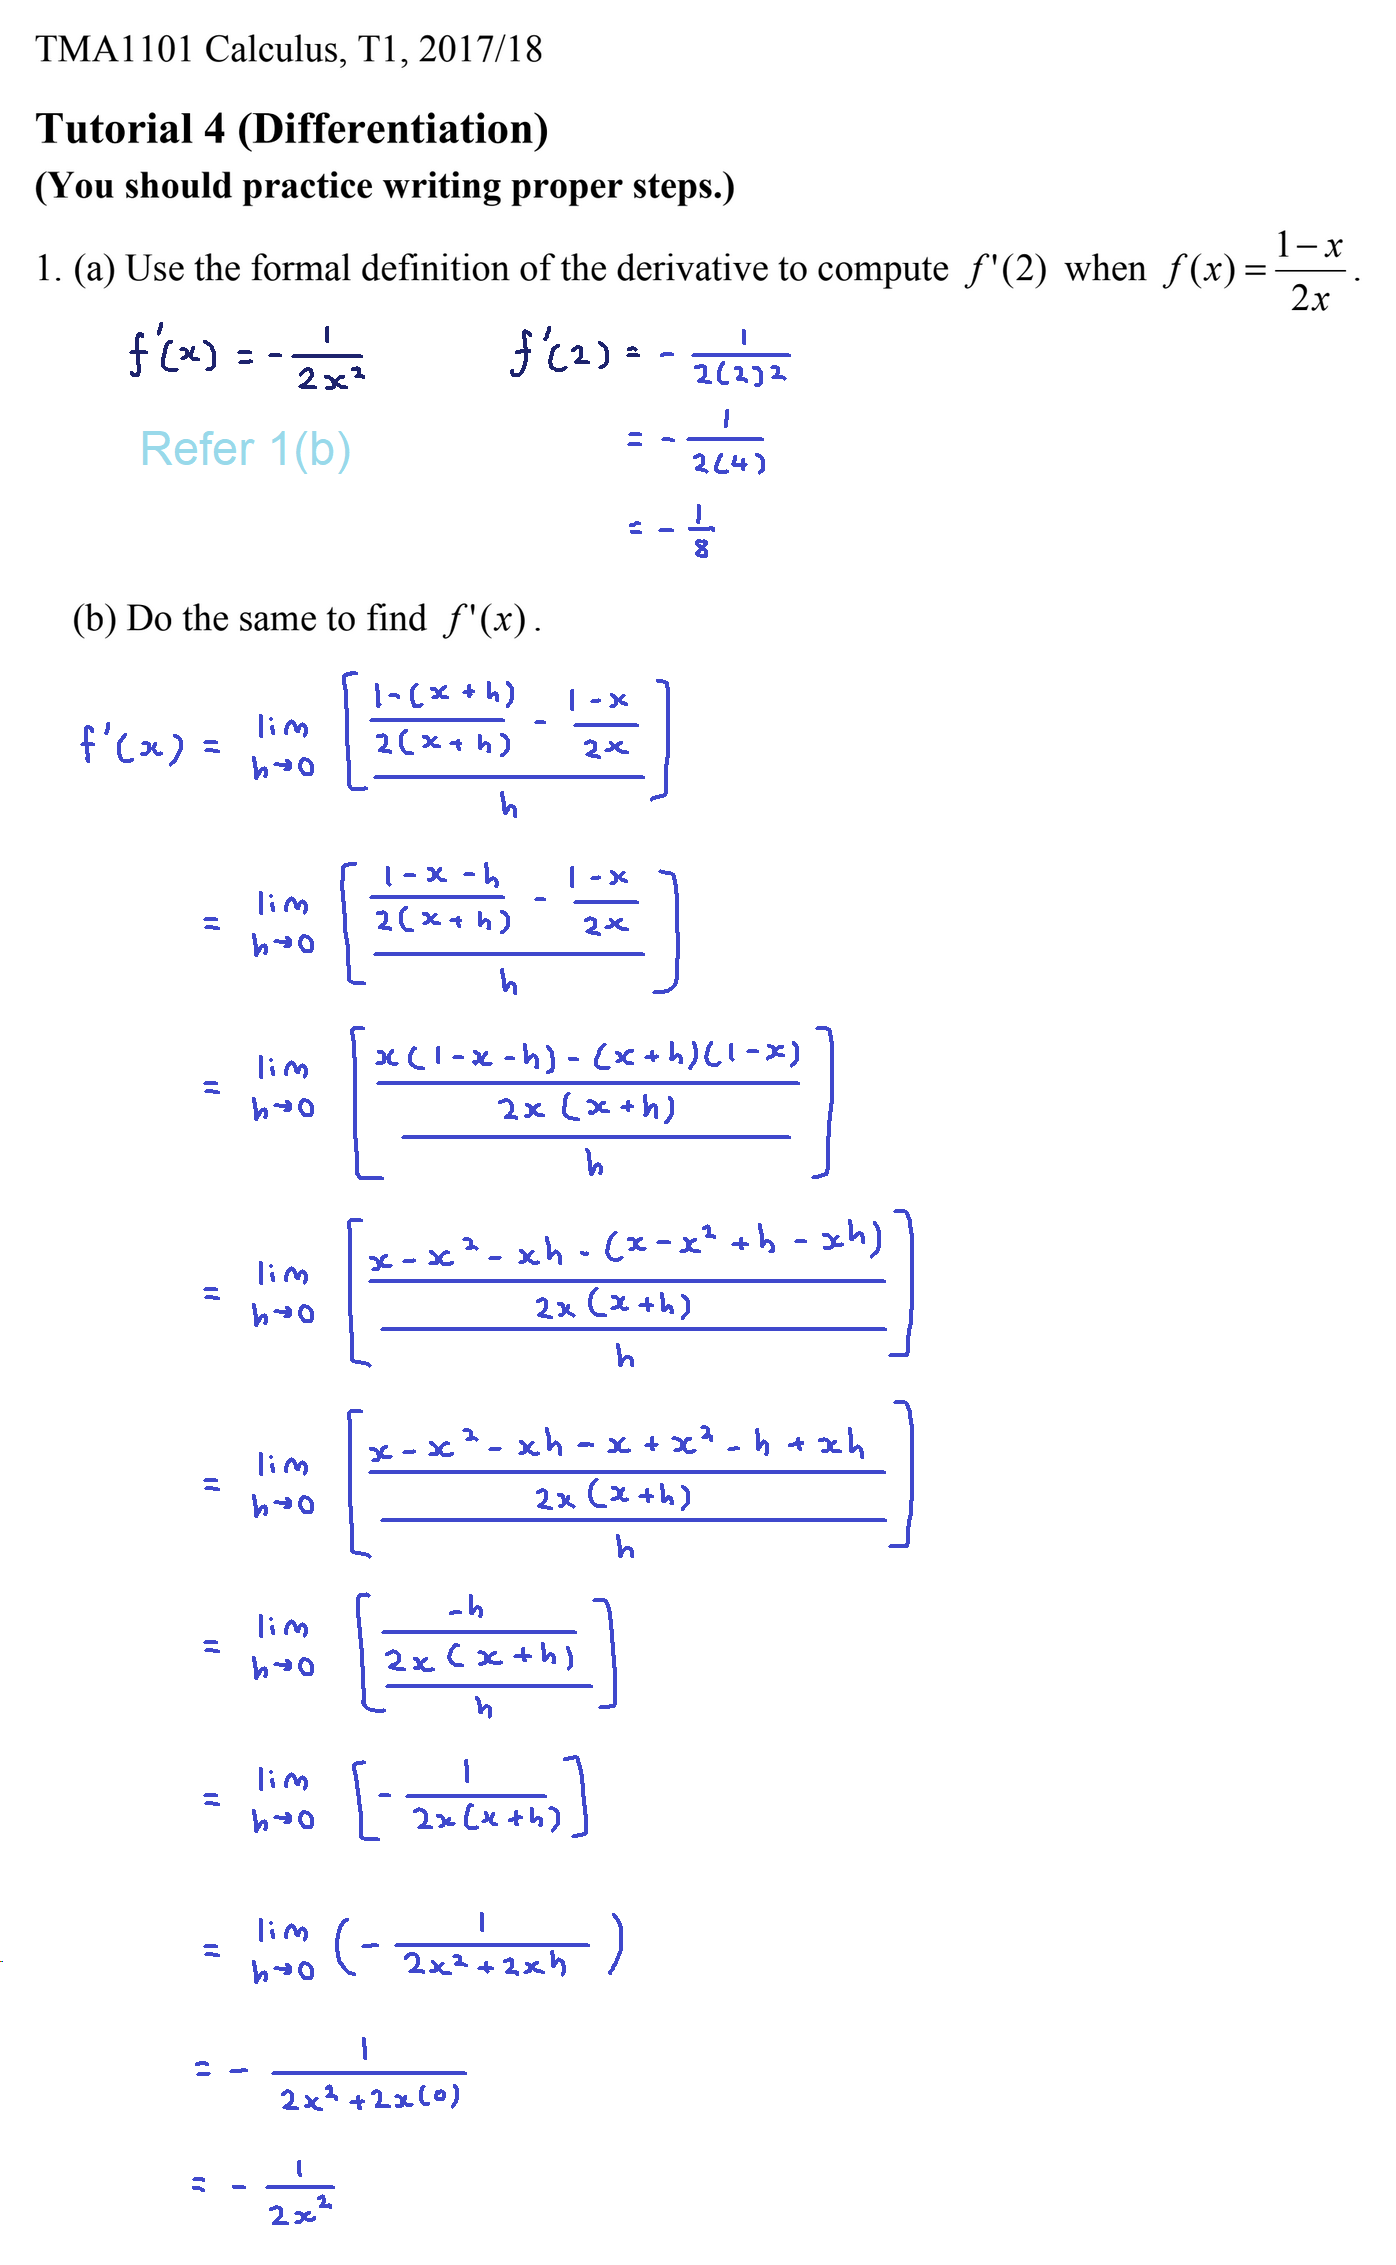 TMA1101 Calculus, T1, 2017/18
Tutorial 4 (Differentiation)
(You should practice writing proper steps.)
1. (a) Use the formal definition of the derivative to compute f'(2) when f(x) = (1−x)/(2x).
f'(x) = - 1/(2x²)
f'(2) = - 1/(2(2)2)
Refer 1(b)
= - 1/(2(4))
= - 1/8
(b) Do the same to find f'(x).
f'(x) = lim h→0 [((1-(x+h))/(2(x+h)) - (1-x)/(2x))/h]
= lim h→0 [((1-x-h)/(2(x+h)) - (1-x)/(2x))/h]
= lim h→0 [((x(1-x-h)-(x+h)(1-x))/(2x(x+h)))/h]
= lim h→0 [((x-x²-xh-(x-x²+h-xh))/(2x(x+h)))/h]
= lim h→0 [((x-x²-xh-x+x²-h+xh)/(2x(x+h)))/h]
= lim h→0 [((-h)/(2x(x+h)))/h]
= lim h→0 [- 1/(2x(x+h))]
= lim h→0 (- 1/(2x²+2xh))
= - 1/(2x²+2x(0))
= - 1/(2x²)